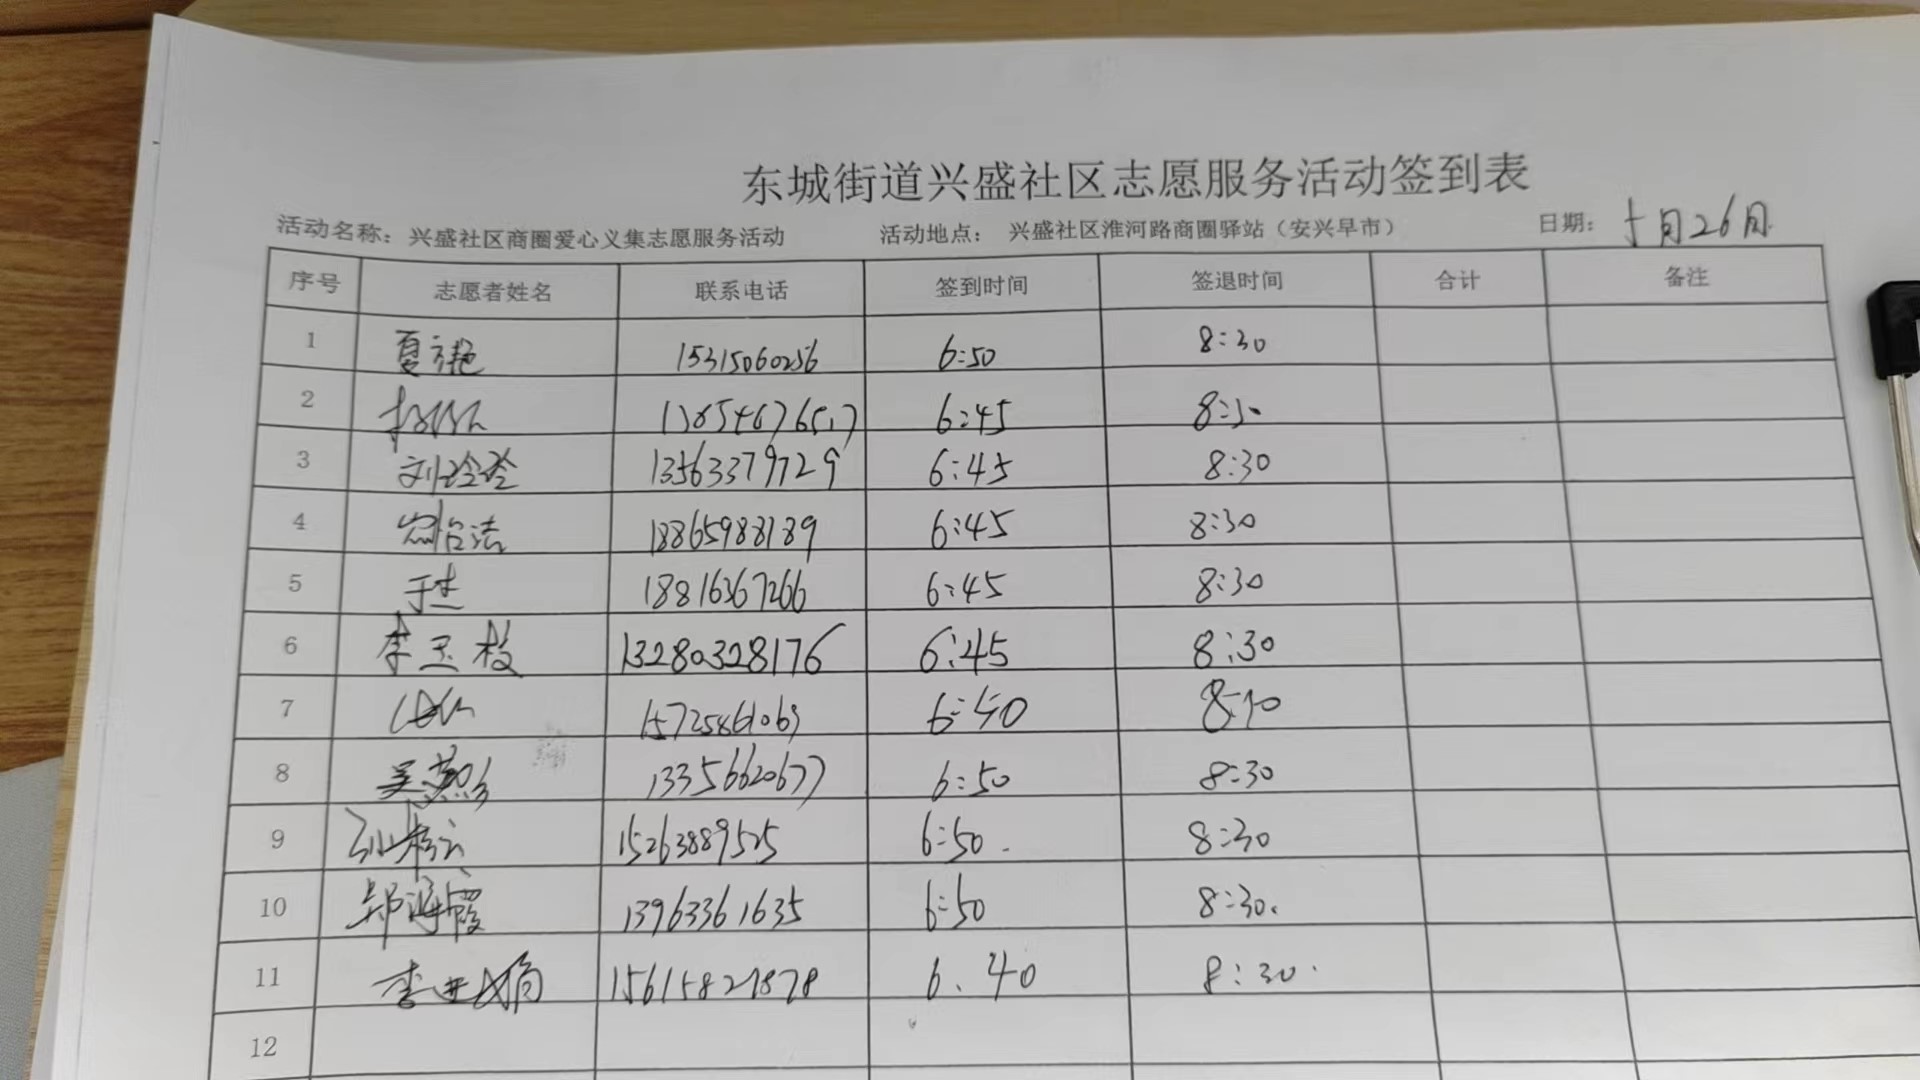 东城街道兴盛社区志愿服务活动签到表
活动名称：兴盛社区商圈爱心义集志愿服务活动 活动地点：兴盛社区淮河路商圈驿站（安兴早市） 日期：十月26日
序号 志愿者姓名 联系电话 签到时间 签退时间 合计 备注
1 夏方艳 15315060256 6:50 8:30
2 6:45 8:30
3 刘玲玲 13563379729 6:45 8:30
4 18865988189 6:45 8:30
5 于杰 18816367266 6:45 8:30
6 李玉枝 13280328176 6:45 8:30
7 15725861069
8 13356620677 6:50 8:30
9 15263889525 6:50 8:30
10 郑海霞 13963361635 6:50 8:30
11 李亚娟 15615821878 6.40 8:30
12